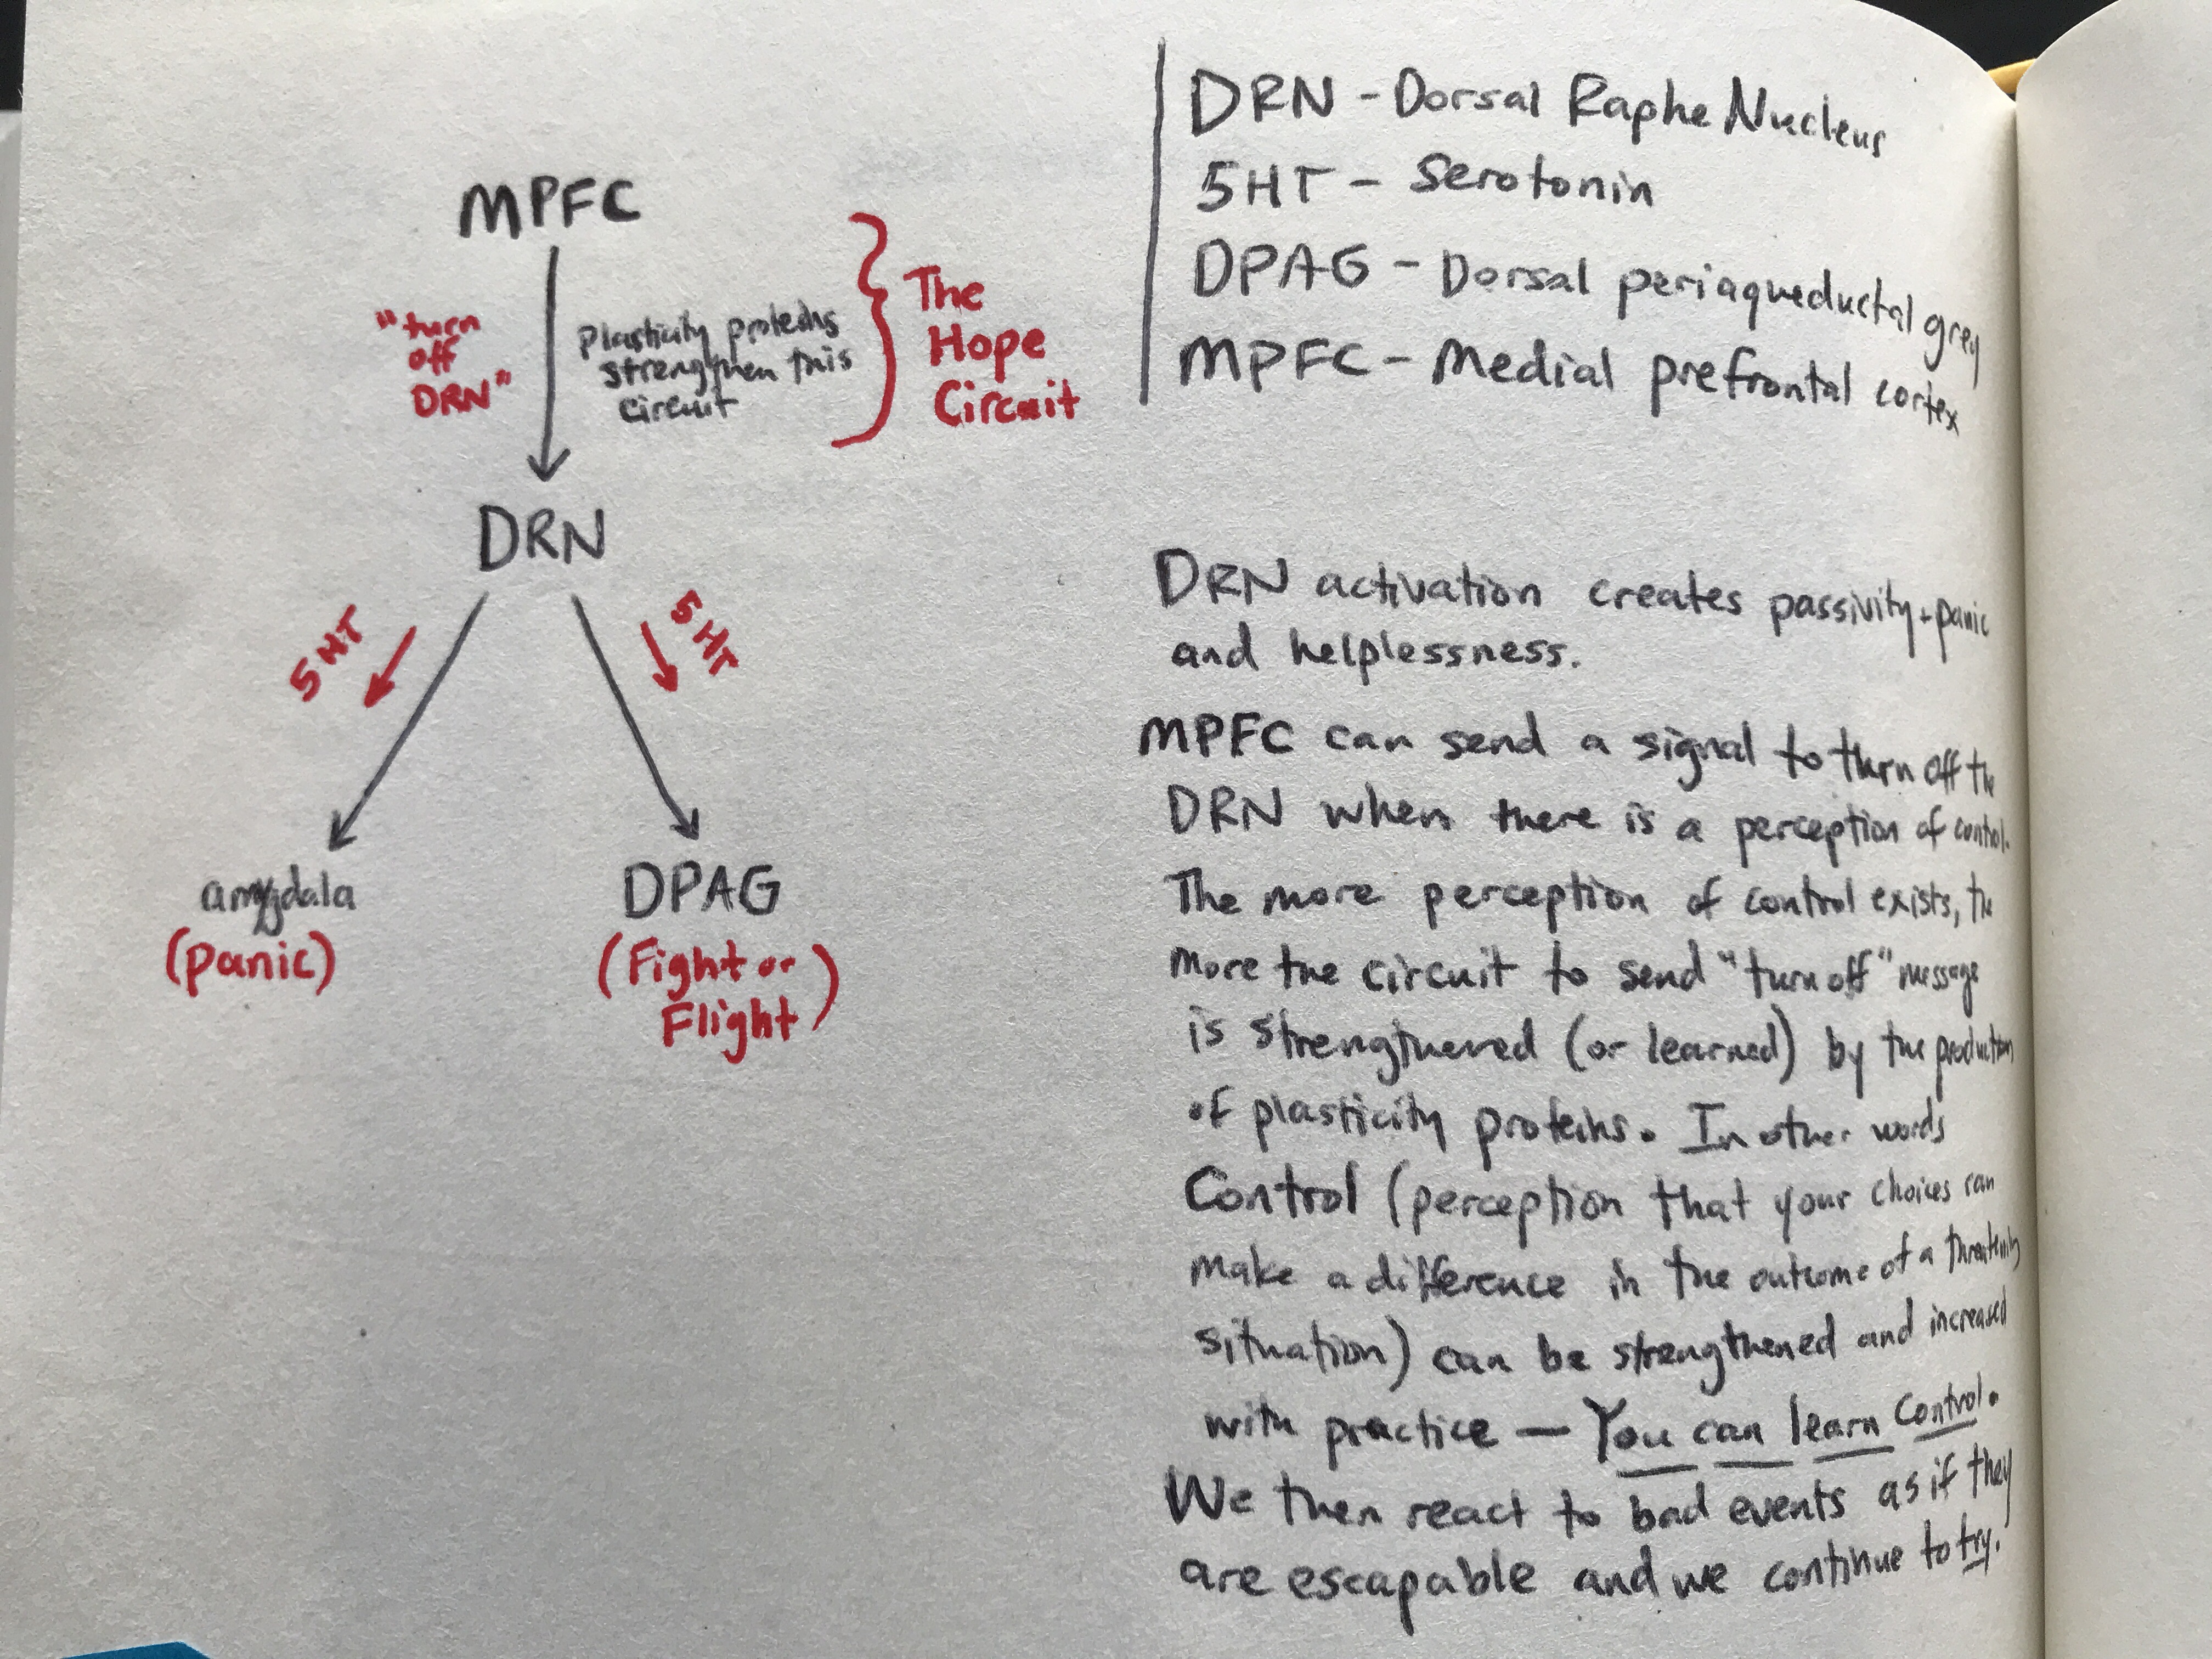 MPFC
"turn
off
DRN"
Plasticity proteins
strengthen this
circuit
The
Hope
Circuit
DRN
5HT
5HT
amygdala
(panic)
DPAG
(Fight or
Flight)
DRN - Dorsal Raphe Nucleus
5HT - Serotonin
DPAG - Dorsal periaqueductal grey
MPFC - Medial prefrontal cortex
DRN activation creates passivity + panic
and helplessness.
MPFC can send a signal to turn off the
DRN when there is a perception of control.
The more perception of control exists, the
more the circuit to send "turn off" message
is strengthened (or learned) by the production
of plasticity proteins. In other words
Control (perception that your choices can
make a difference in the outcome of a threatening
situation) can be strengthened and increased
with practice — You can learn control.
We then react to bad events as if they
are escapable and we continue to try.